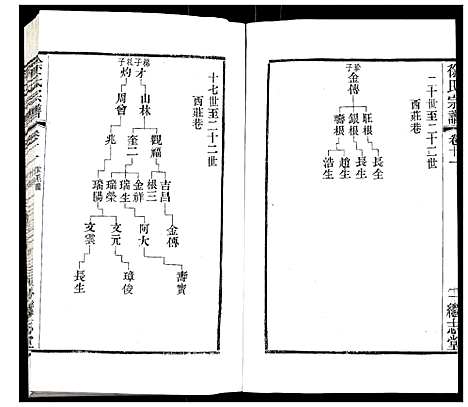 徐氏宗譜
卷十一
二十世至二十二世
西莊巷
子
金傳
旺根
銀根
壽根
長全
長生
趙生
浩生
一
繼志堂
十七世至二十二世
西莊巷
子
才
子
灼
山林
周曾
觀福
奎二
兆
吉昌
根三
金祥
瑞生
瑞榮
瑞陽
金傳
阿大
文元
文雲
壽寶
璋俊
長生